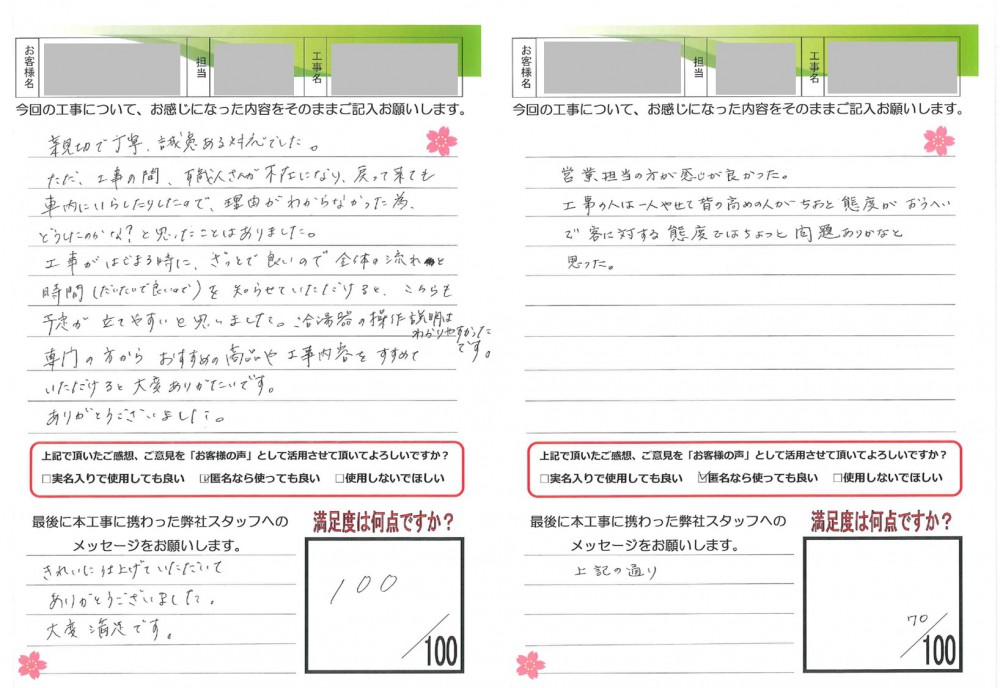 お客様名
担当
工事名
今回の工事について、お感じになった内容をそのままご記入お願いします。
親切で丁寧、誠意ある対応でした。
ただ、工事の間、職人さんが不在になり、戻って来ても
車内にいらしたりしたので、理由がわからなかった為、
どうしたのかな?と思ったことはありました。
工事がはじまる時に、ざっとで良いので全体の流れと
時間(だいたいで良いので)を知らせていただけると、こちらも
予定が立てやすいと思いました。給湯器の操作説明は
わかりやすかった
です。
専門の方からおすすめの商品や工事内容をすすめて
いただけると大変ありがたいです。
ありがとうございました。
上記で頂いたご感想、ご意見を「お客様の声」として活用させて頂いてよろしいですか?
□実名入りで使用しても良い ☑匿名なら使っても良い □使用しないでほしい
最後に本工事に携わった弊社スタッフへの
メッセージをお願いします。
きれいに仕上げていただいて
ありがとうございました。
大変満足です。
満足度は何点ですか?
100
/100
お客様名
担当
工事名
今回の工事について、お感じになった内容をそのままご記入お願いします。
営業担当の方が感じが良かった。
工事の人は一人やせて背の高めの人がちおと態度がおうへい
で客に対する態度ではちょっと問題ありかなと
思った。
上記で頂いたご感想、ご意見を「お客様の声」として活用させて頂いてよろしいですか?
□実名入りで使用しても良い ☑匿名なら使っても良い □使用しないでほしい
最後に本工事に携わった弊社スタッフへの
メッセージをお願いします。
上記の通り
満足度は何点ですか?
70
/100